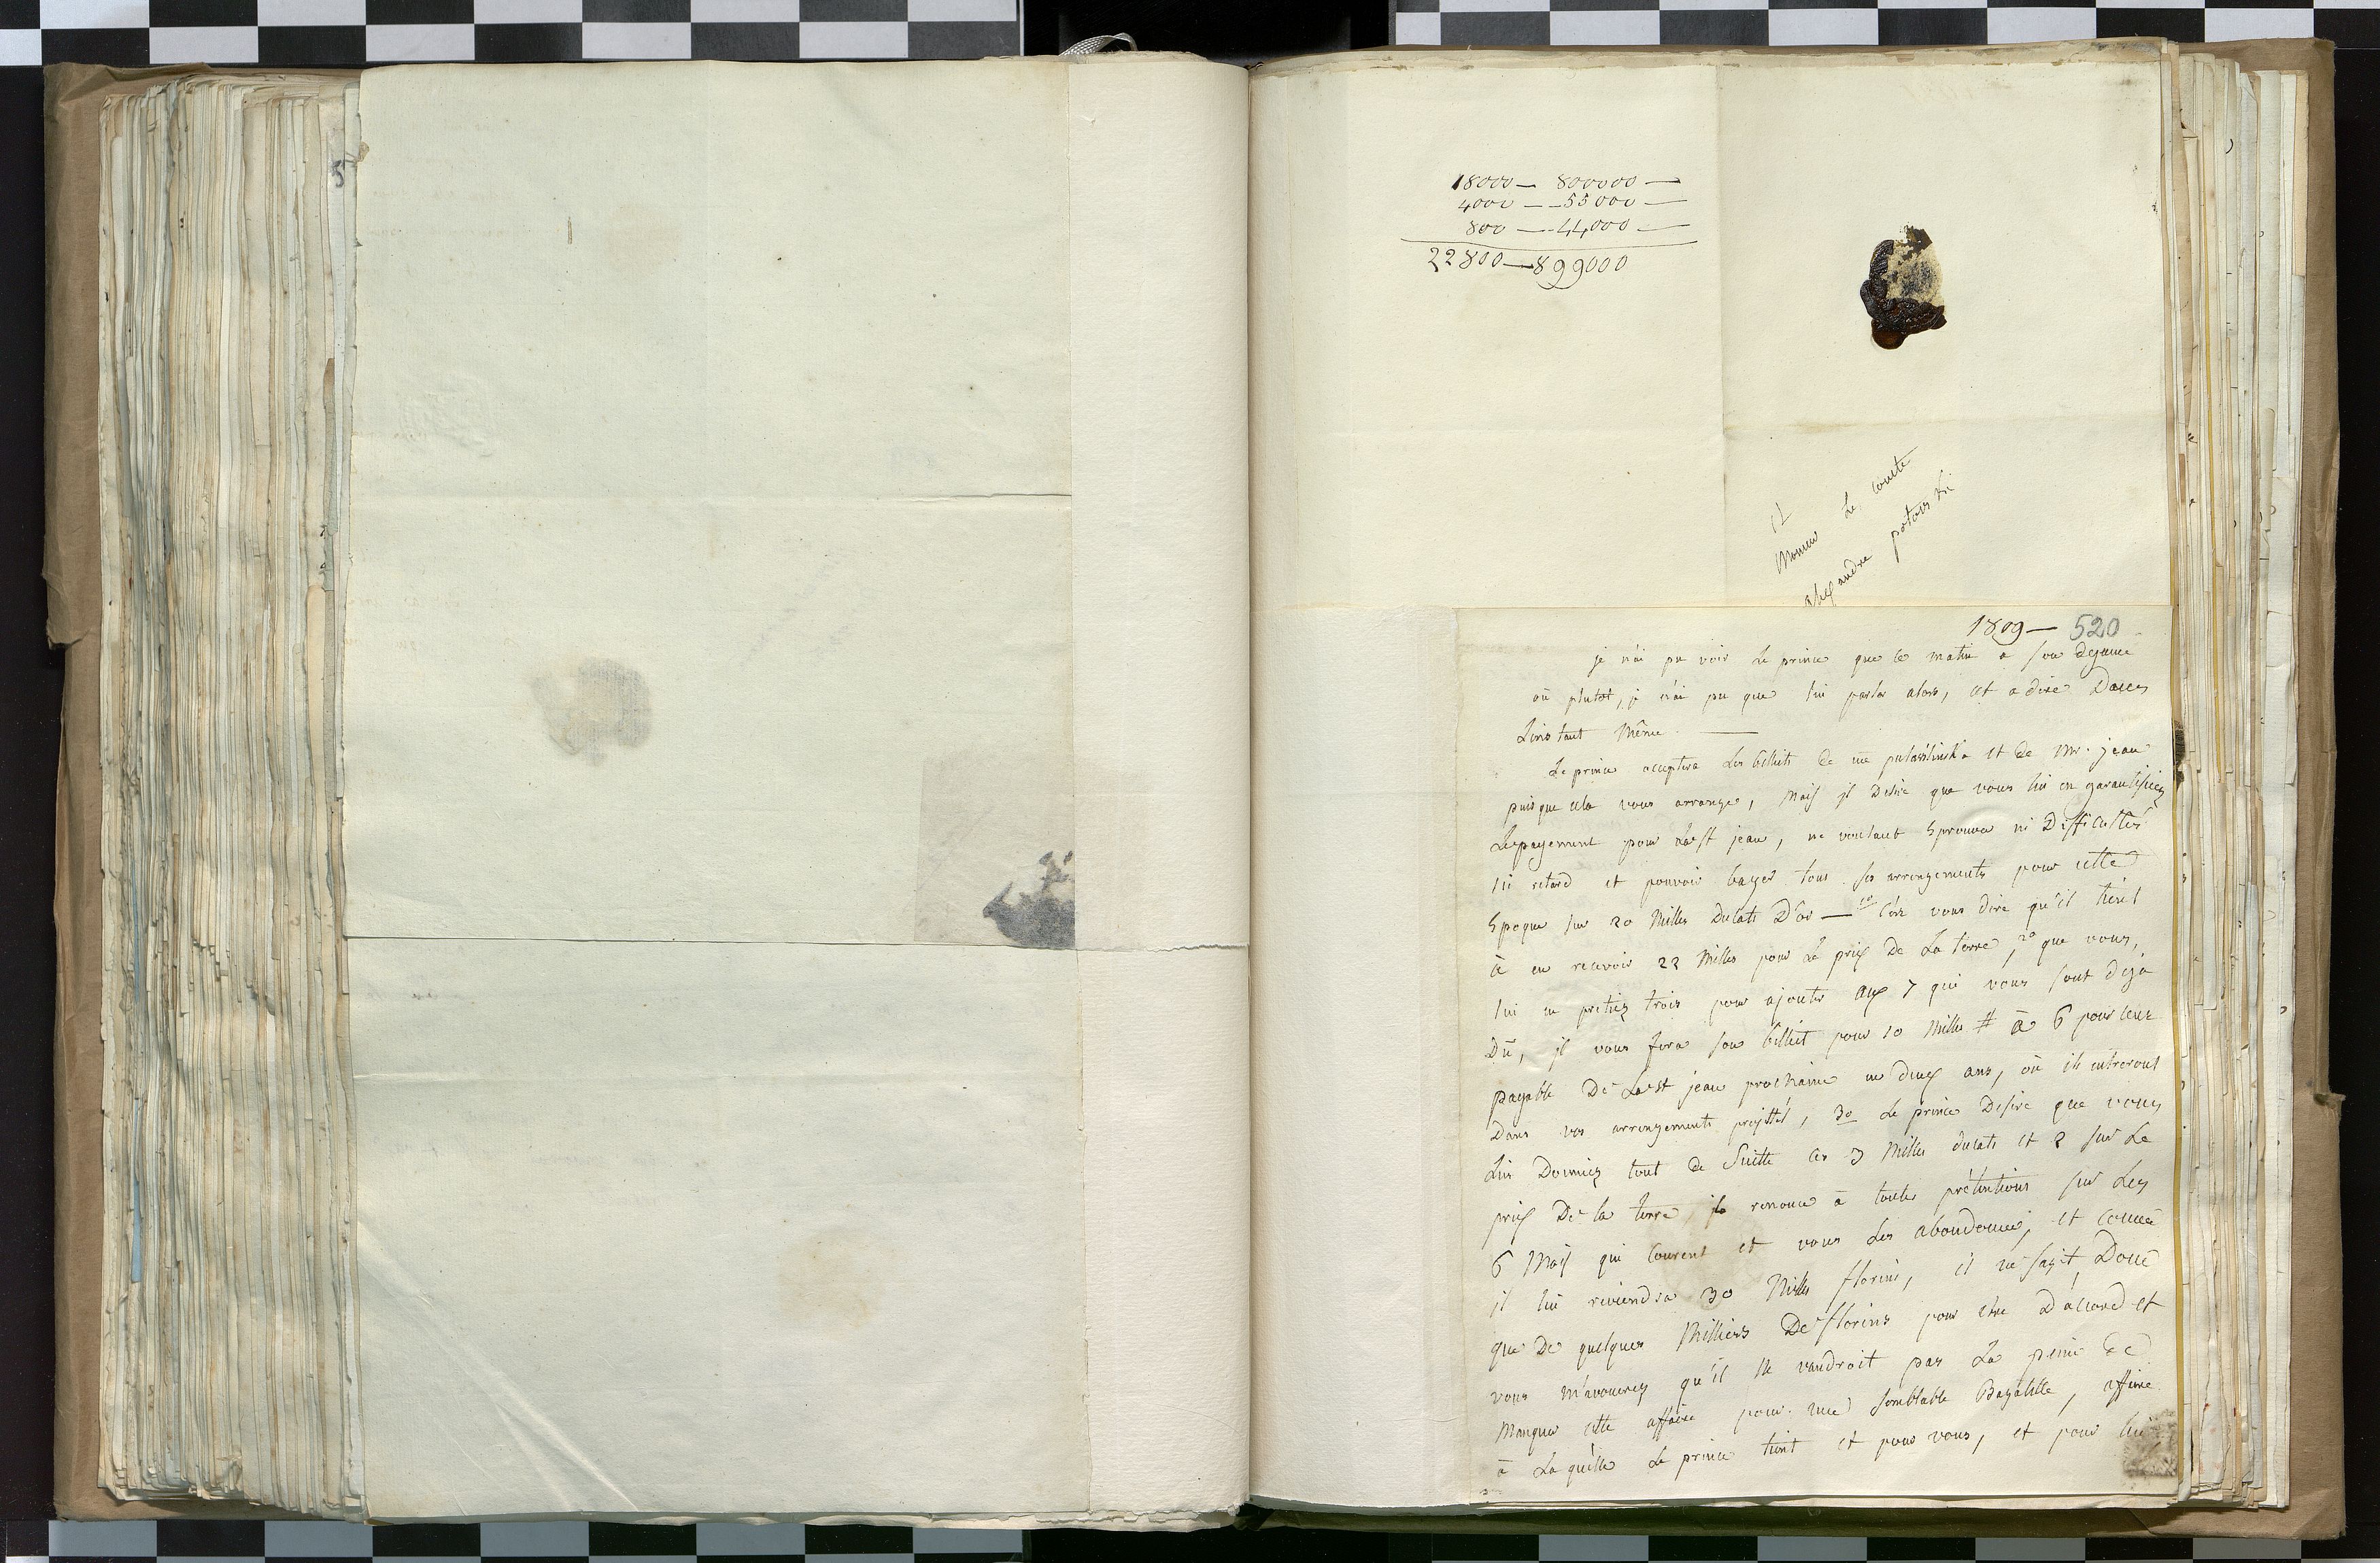 5
18000 — 800000 —
4000 — 55000 —
800 — 44,000 —
22800 — 899000
Le comte
alexandre potocki
1809 — 520
je n'ai pu voir Le prince que ce matin a son dejeuné
où plutot, je n'ai pu que lui parler alors, cet a dire Dans
L'instant Même. —
Le prince acceptera Les billiets de et de Mr. jean
puis que cela vous arrange, Mais jl Desire que vous lui en garantisiez
Le payement pour La st jean, ne voulant Eprouver ni Difficultés
ni retard et pouvoir bazer tous ses arrengements pour cette
Epoque sur 20 Milles Ducats D'or — 1º C'est vous dire qu'il tient
à en recevoir 22 Milles pour Le prix De La terre, 2º que vous,
lui en pretiez trois pour ajouter aux 7 qui vous sont déjà
Dû, jl vous fera son billiet pour 10 Milles # à 6 pour cent
payable De La st jean prochaine en deux ans, où ils entreront
Dans vos arrengements projetté, 3º Le prince Desire que vous
Lui Donniez tout de Suitte ces 3 Milles ducats et 2 sur Le
prix De la terre, jl renonce à toutes prétentions sur Les
6 Mois qui courent et vous Les abondonne, et comme
jl lui reviendra 30 Milles florins, il ne s'agit Donc
que De quelques Milliers De florins pour être D'accord et
vous M'avouerez qu'il ne vaudroit pas La peine de
Manquer cette affaire pour une semblable Bagatelle, affaire
à La quelle Le prince tient et pour vous, et pour lui